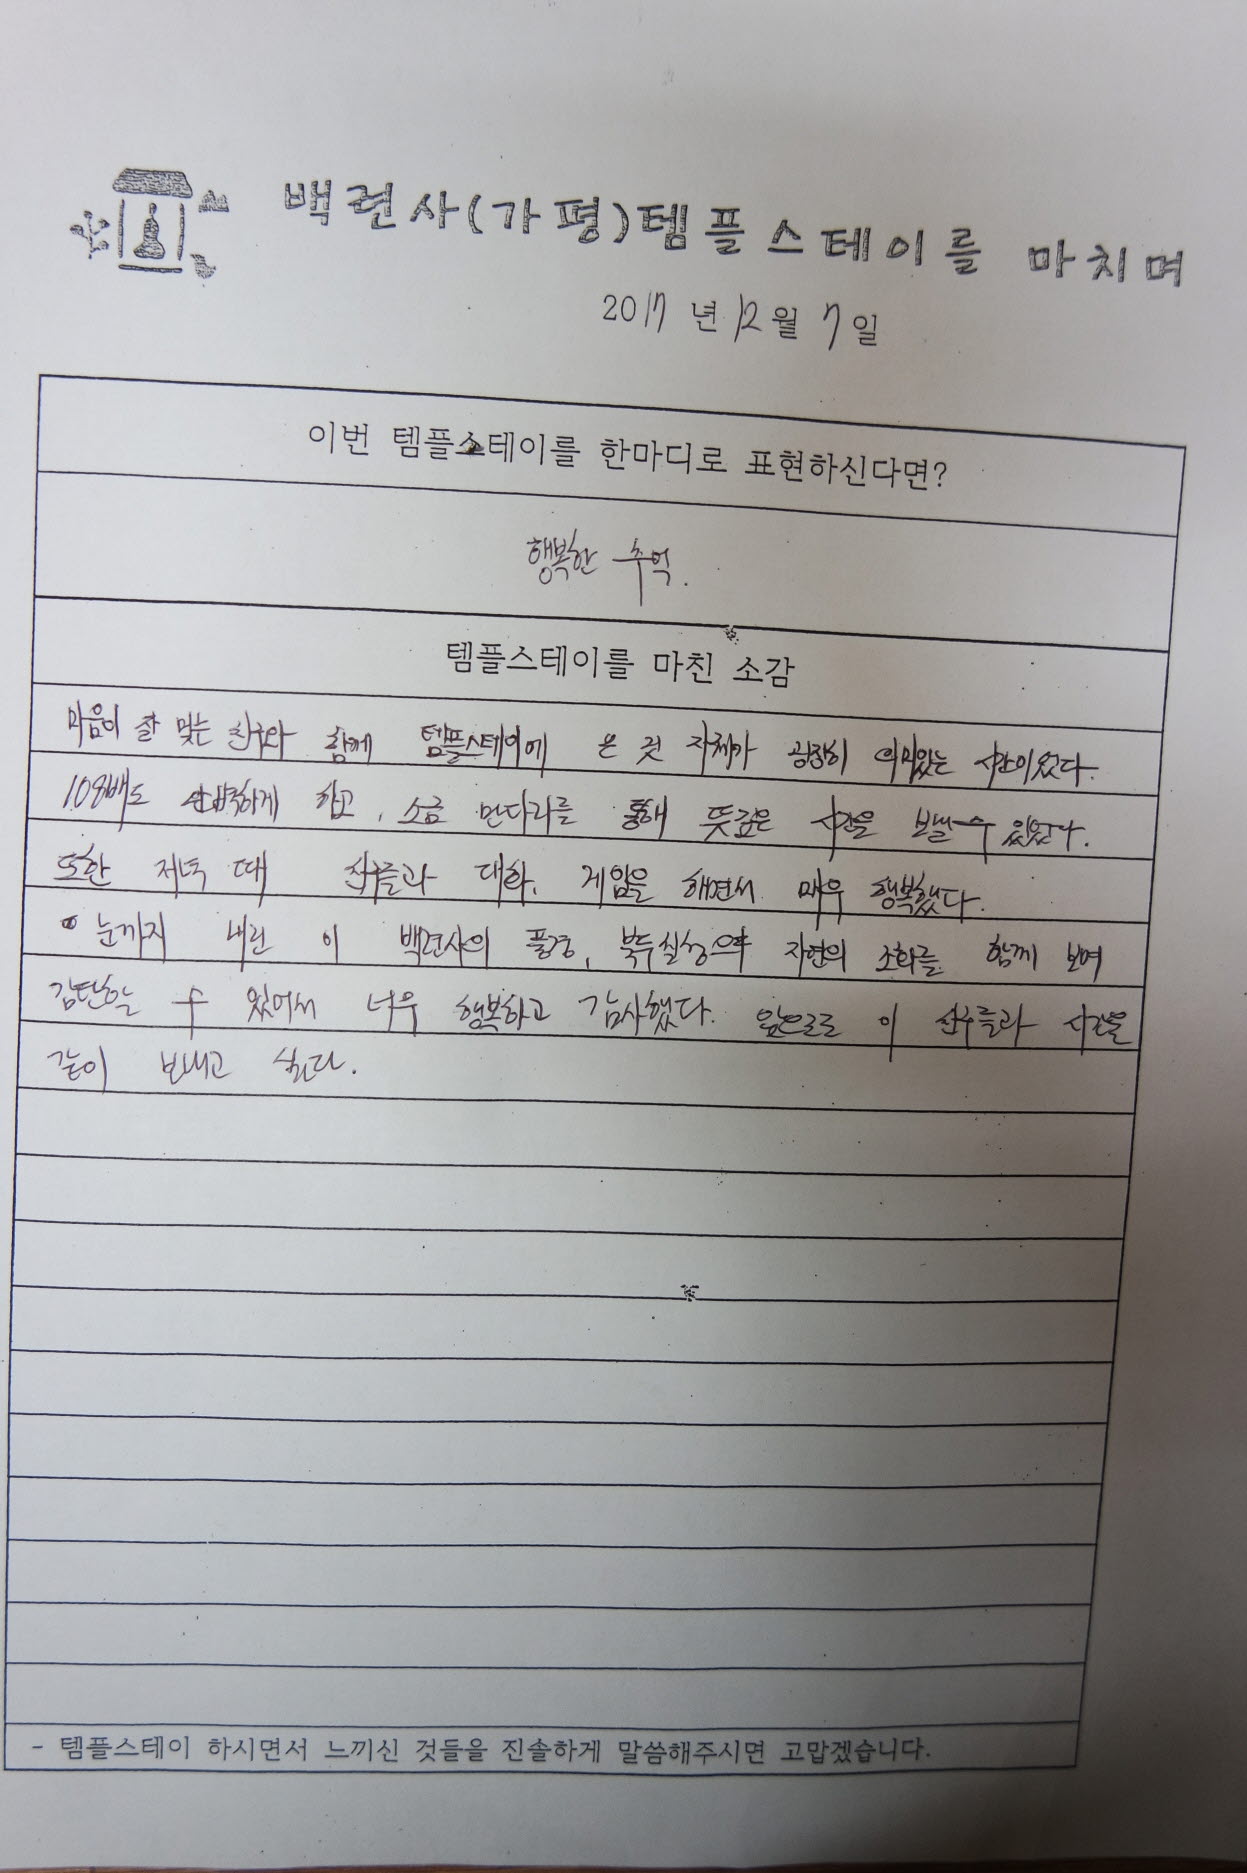 백련사(가평)템플스테이를 마치며
2017년 12월 7일
이번 템플스테이를 한마디로 표현하신다면?
행복한 추억.
템플스테이를 마친 소감
마음이 잘 맞는 친구와 함께 템플스테이에 온 것 자체가 굉장히 의미있는 시간이었다.
108배도 완벽하게 하고, 소금 만다라를 통해 뜻깊은 시간을 보낼 수 있었다.
또한 저녁 때 친구들과 대화, 게임을 하면서 매우 행복했다.
눈까지 내린 이 백련사의 풍경, 북두칠성과 자연의 조화를 함께 보며
감탄할 수 있어서 너무 행복하고 감사했다. 앞으로도 이 친구들과 시간을
같이 보내고 싶다.
- 템플스테이 하시면서 느끼신 것들을 진솔하게 말씀해주시면 고맙겠습니다.